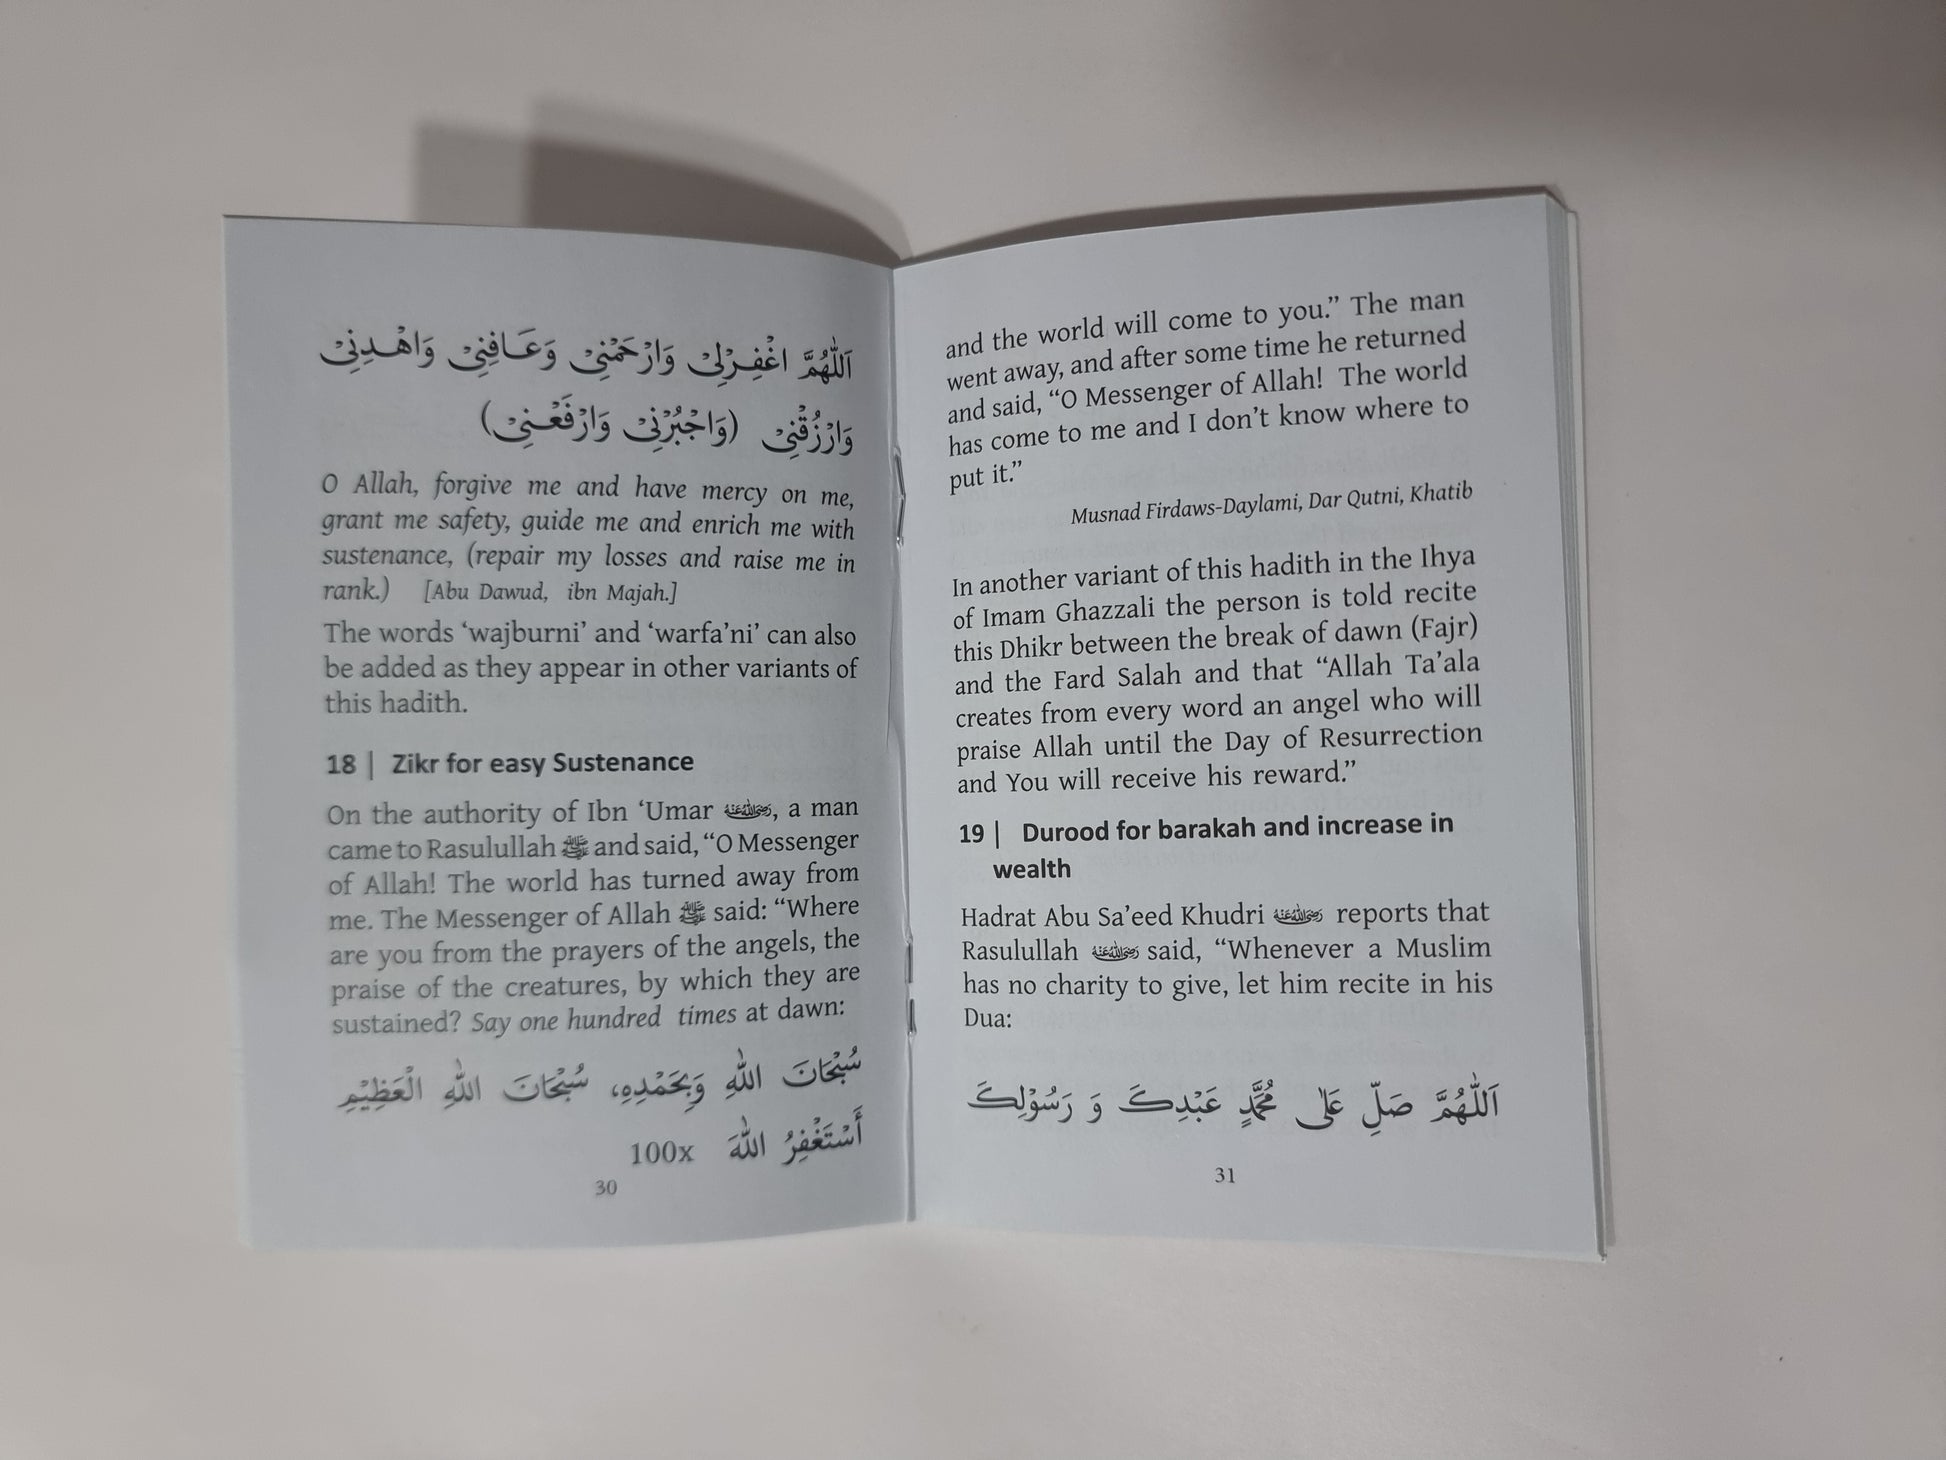 اَللّٰهُمَّ اغْفِرْلِيْ وَارْحَمْنِيْ وَعَافِنِيْ وَاهْدِنِيْ
وَارْزُقْنِيْ (وَاجْبُرْنِيْ وَارْفَعْنِيْ)
O Allah, forgive me and have mercy on me,
grant me safety, guide me and enrich me with
sustenance, (repair my losses and raise me in
rank.) [Abu Dawud, ibn Majah.]
The words ‘wajburni’ and ‘warfa’ni’ can also
be added as they appear in other variants of
this hadith.
18 | Zikr for easy Sustenance
On the authority of Ibn ‘Umar رضي الله عنه, a man
came to Rasulullah ﷺ and said, “O Messenger
of Allah! The world has turned away from
me. The Messenger of Allah ﷺ said: “Where
are you from the prayers of the angels, the
praise of the creatures, by which they are
sustained? Say one hundred times at dawn:
سُبْحَانَ اللّٰهِ وَبِحَمْدِهِ، سُبْحَانَ اللّٰهِ الْعَظِيْمِ
أَسْتَغْفِرُ اللّٰهَ 100x
30
and the world will come to you.” The man
went away, and after some time he returned
and said, “O Messenger of Allah! The world
has come to me and I don’t know where to
put it.”
Musnad Firdaws-Daylami, Dar Qutni, Khatib
In another variant of this hadith in the Ihya
of Imam Ghazzali the person is told recite
this Dhikr between the break of dawn (Fajr)
and the Fard Salah and that “Allah Ta’ala
creates from every word an angel who will
praise Allah until the Day of Resurrection
and You will receive his reward.”
19 | Durood for barakah and increase in
wealth
Hadrat Abu Sa’eed Khudri رضي الله عنه reports that
Rasulullah رضي الله عنه said, “Whenever a Muslim
has no charity to give, let him recite in his
Dua:
اَللّٰهُمَّ صَلِّ عَلٰى مُحَمَّدٍ عَبْدِكَ وَ رَسُوْلِكَ
31